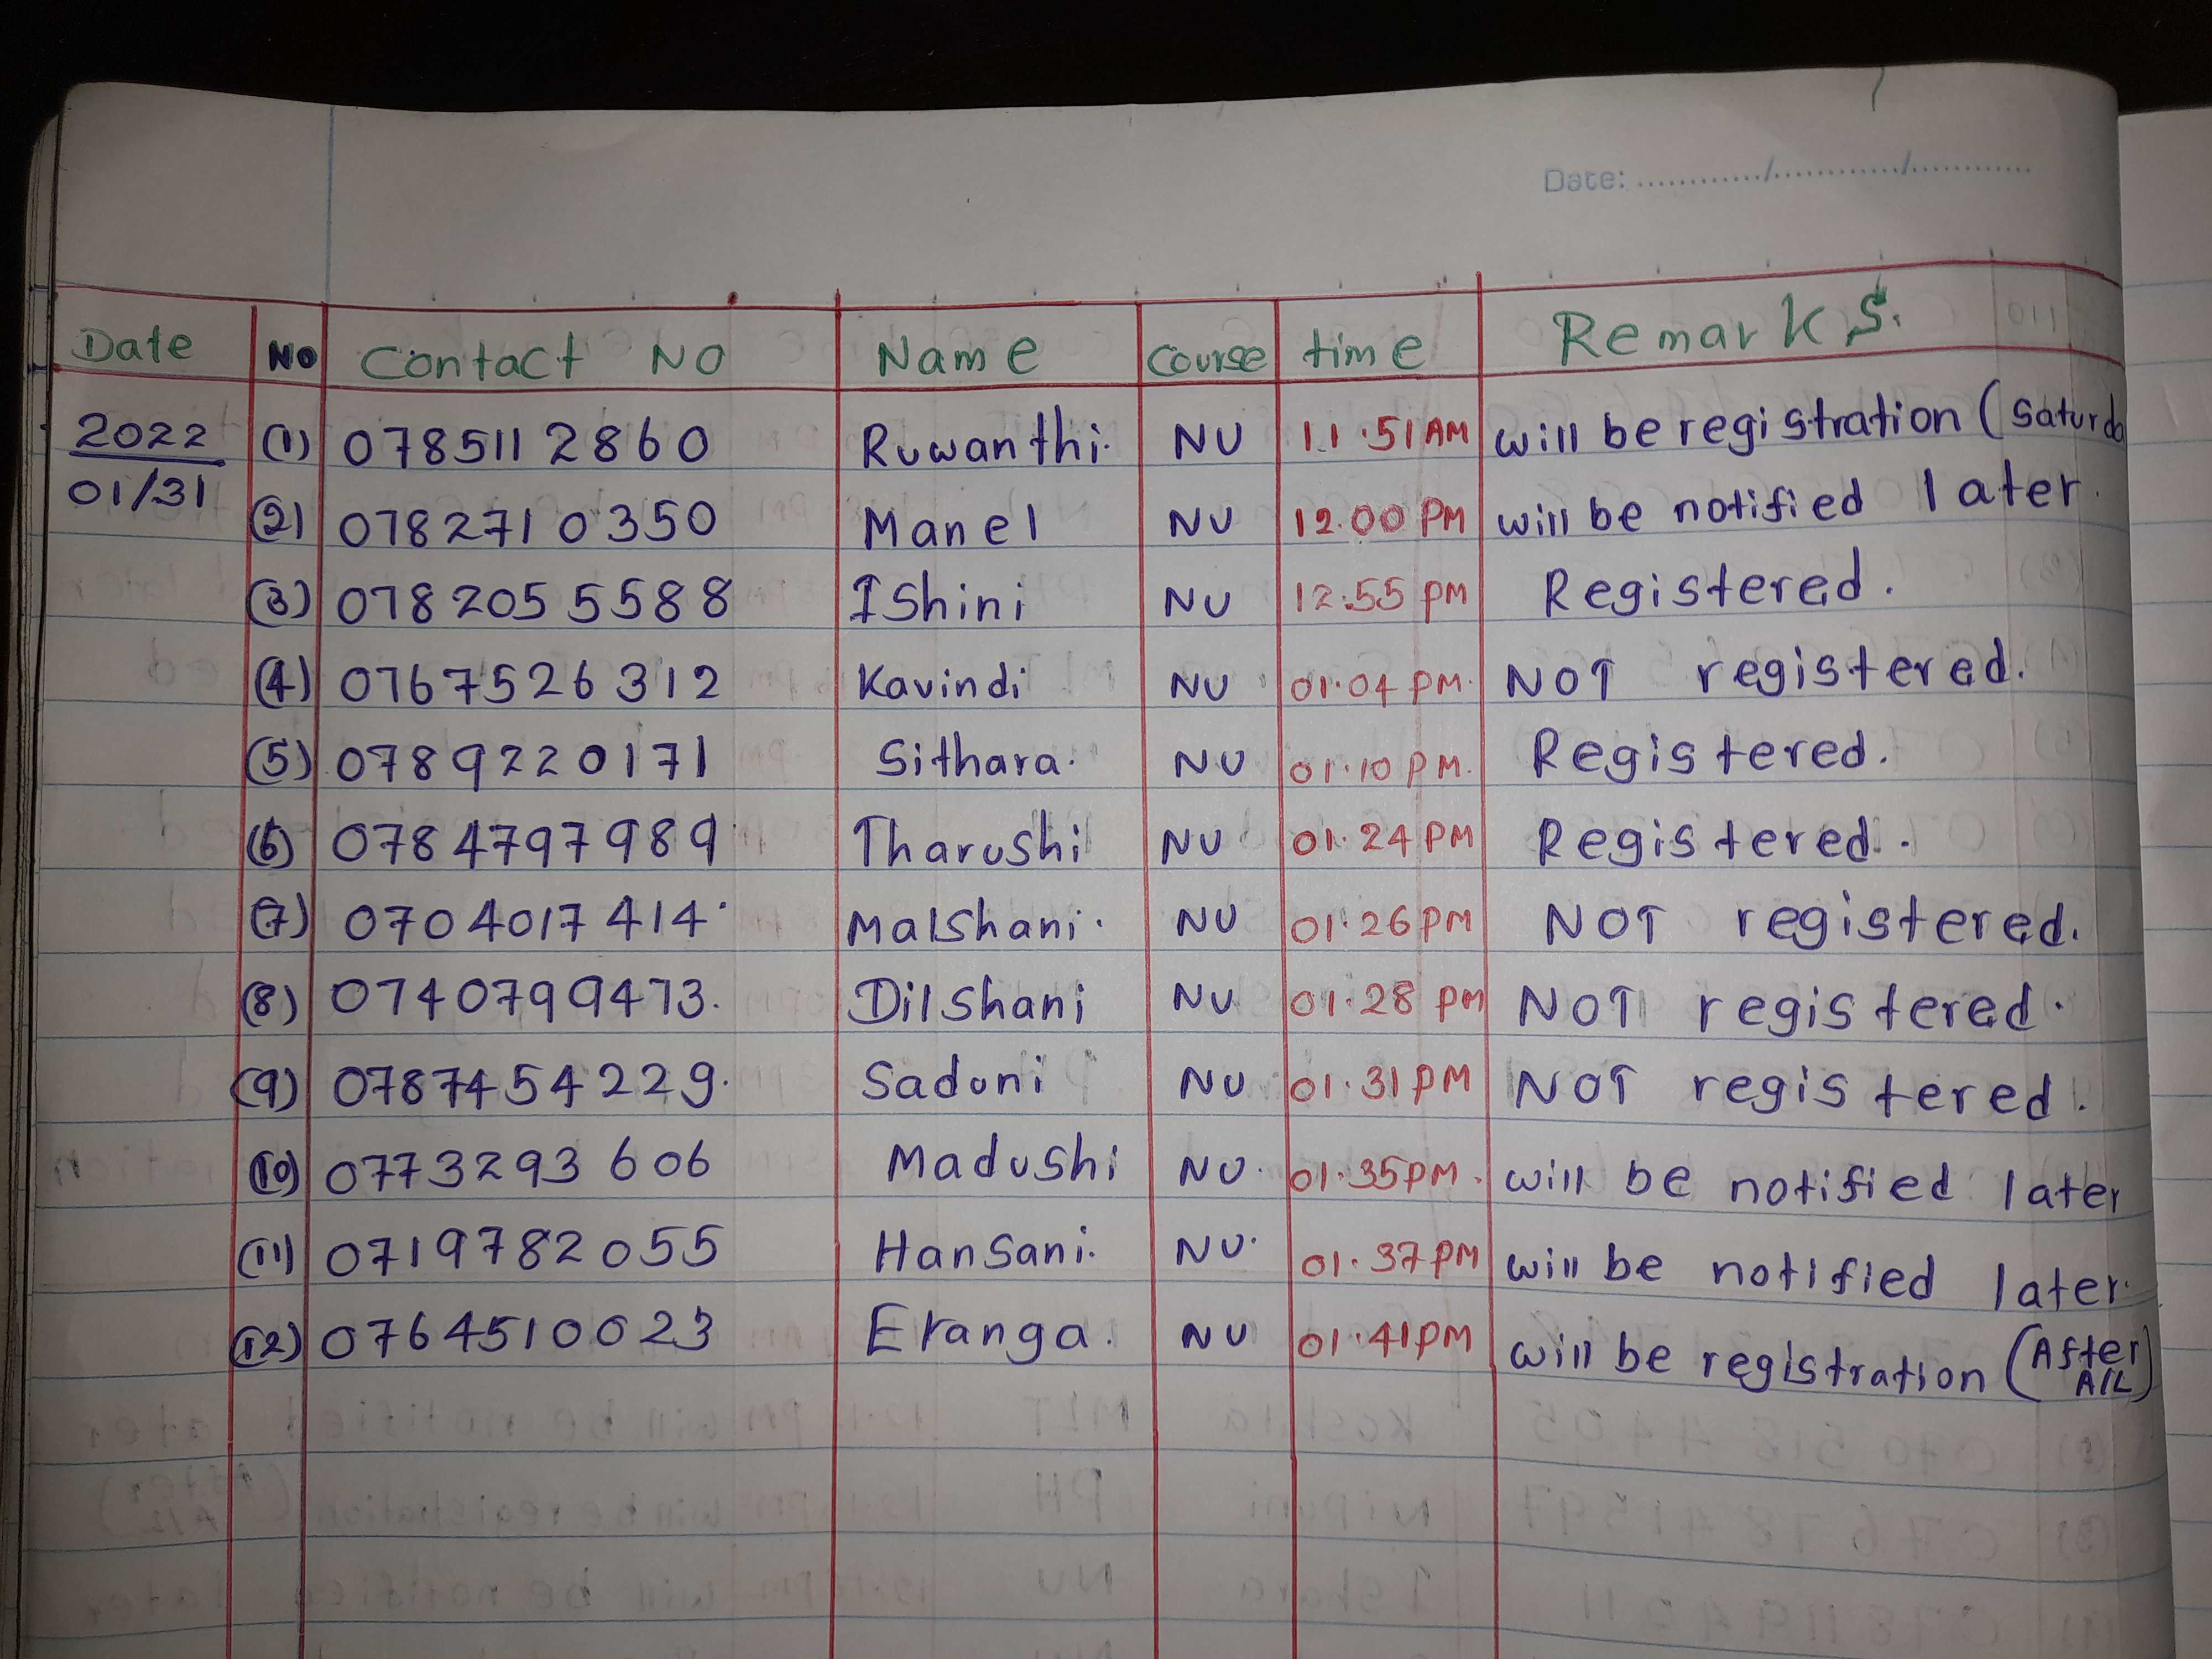 Date: ............/............/............
Date No Contact No Name Course time Remarks.
2022 (1) 0785112860 Ruwanthi. NU 11.51 AM will be registration (Saturda
01/31
(2) 0782710350 Manel NU 12.00 PM will be notified later.
(3) 0782055588 Ishini NU 12.55 PM Registered.
(4) 0767526312 Kavindi NU 01.04 PM. NOT registered.
(5) 0789220171 Sithara. NU 01.10 PM. Registered.
(6) 0784797989 Tharushi NU 01.24 PM Registered.
(7) 0704017414. Malshani. NU 01.26 PM NOT registered.
(8) 0740799473. Dilshani NU 01.28 PM NOT registered.
(9) 0787454229. Saduni NU 01.31 PM NOT registered.
(10) 0773293606 Madushi NU. 01.35 PM. will be notified later
(11) 0719782055 Hansani. NU. 01.37 PM will be notified later.
(12) 0764510023 Eranga. NU 01.41 PM will be registration (After A/L)